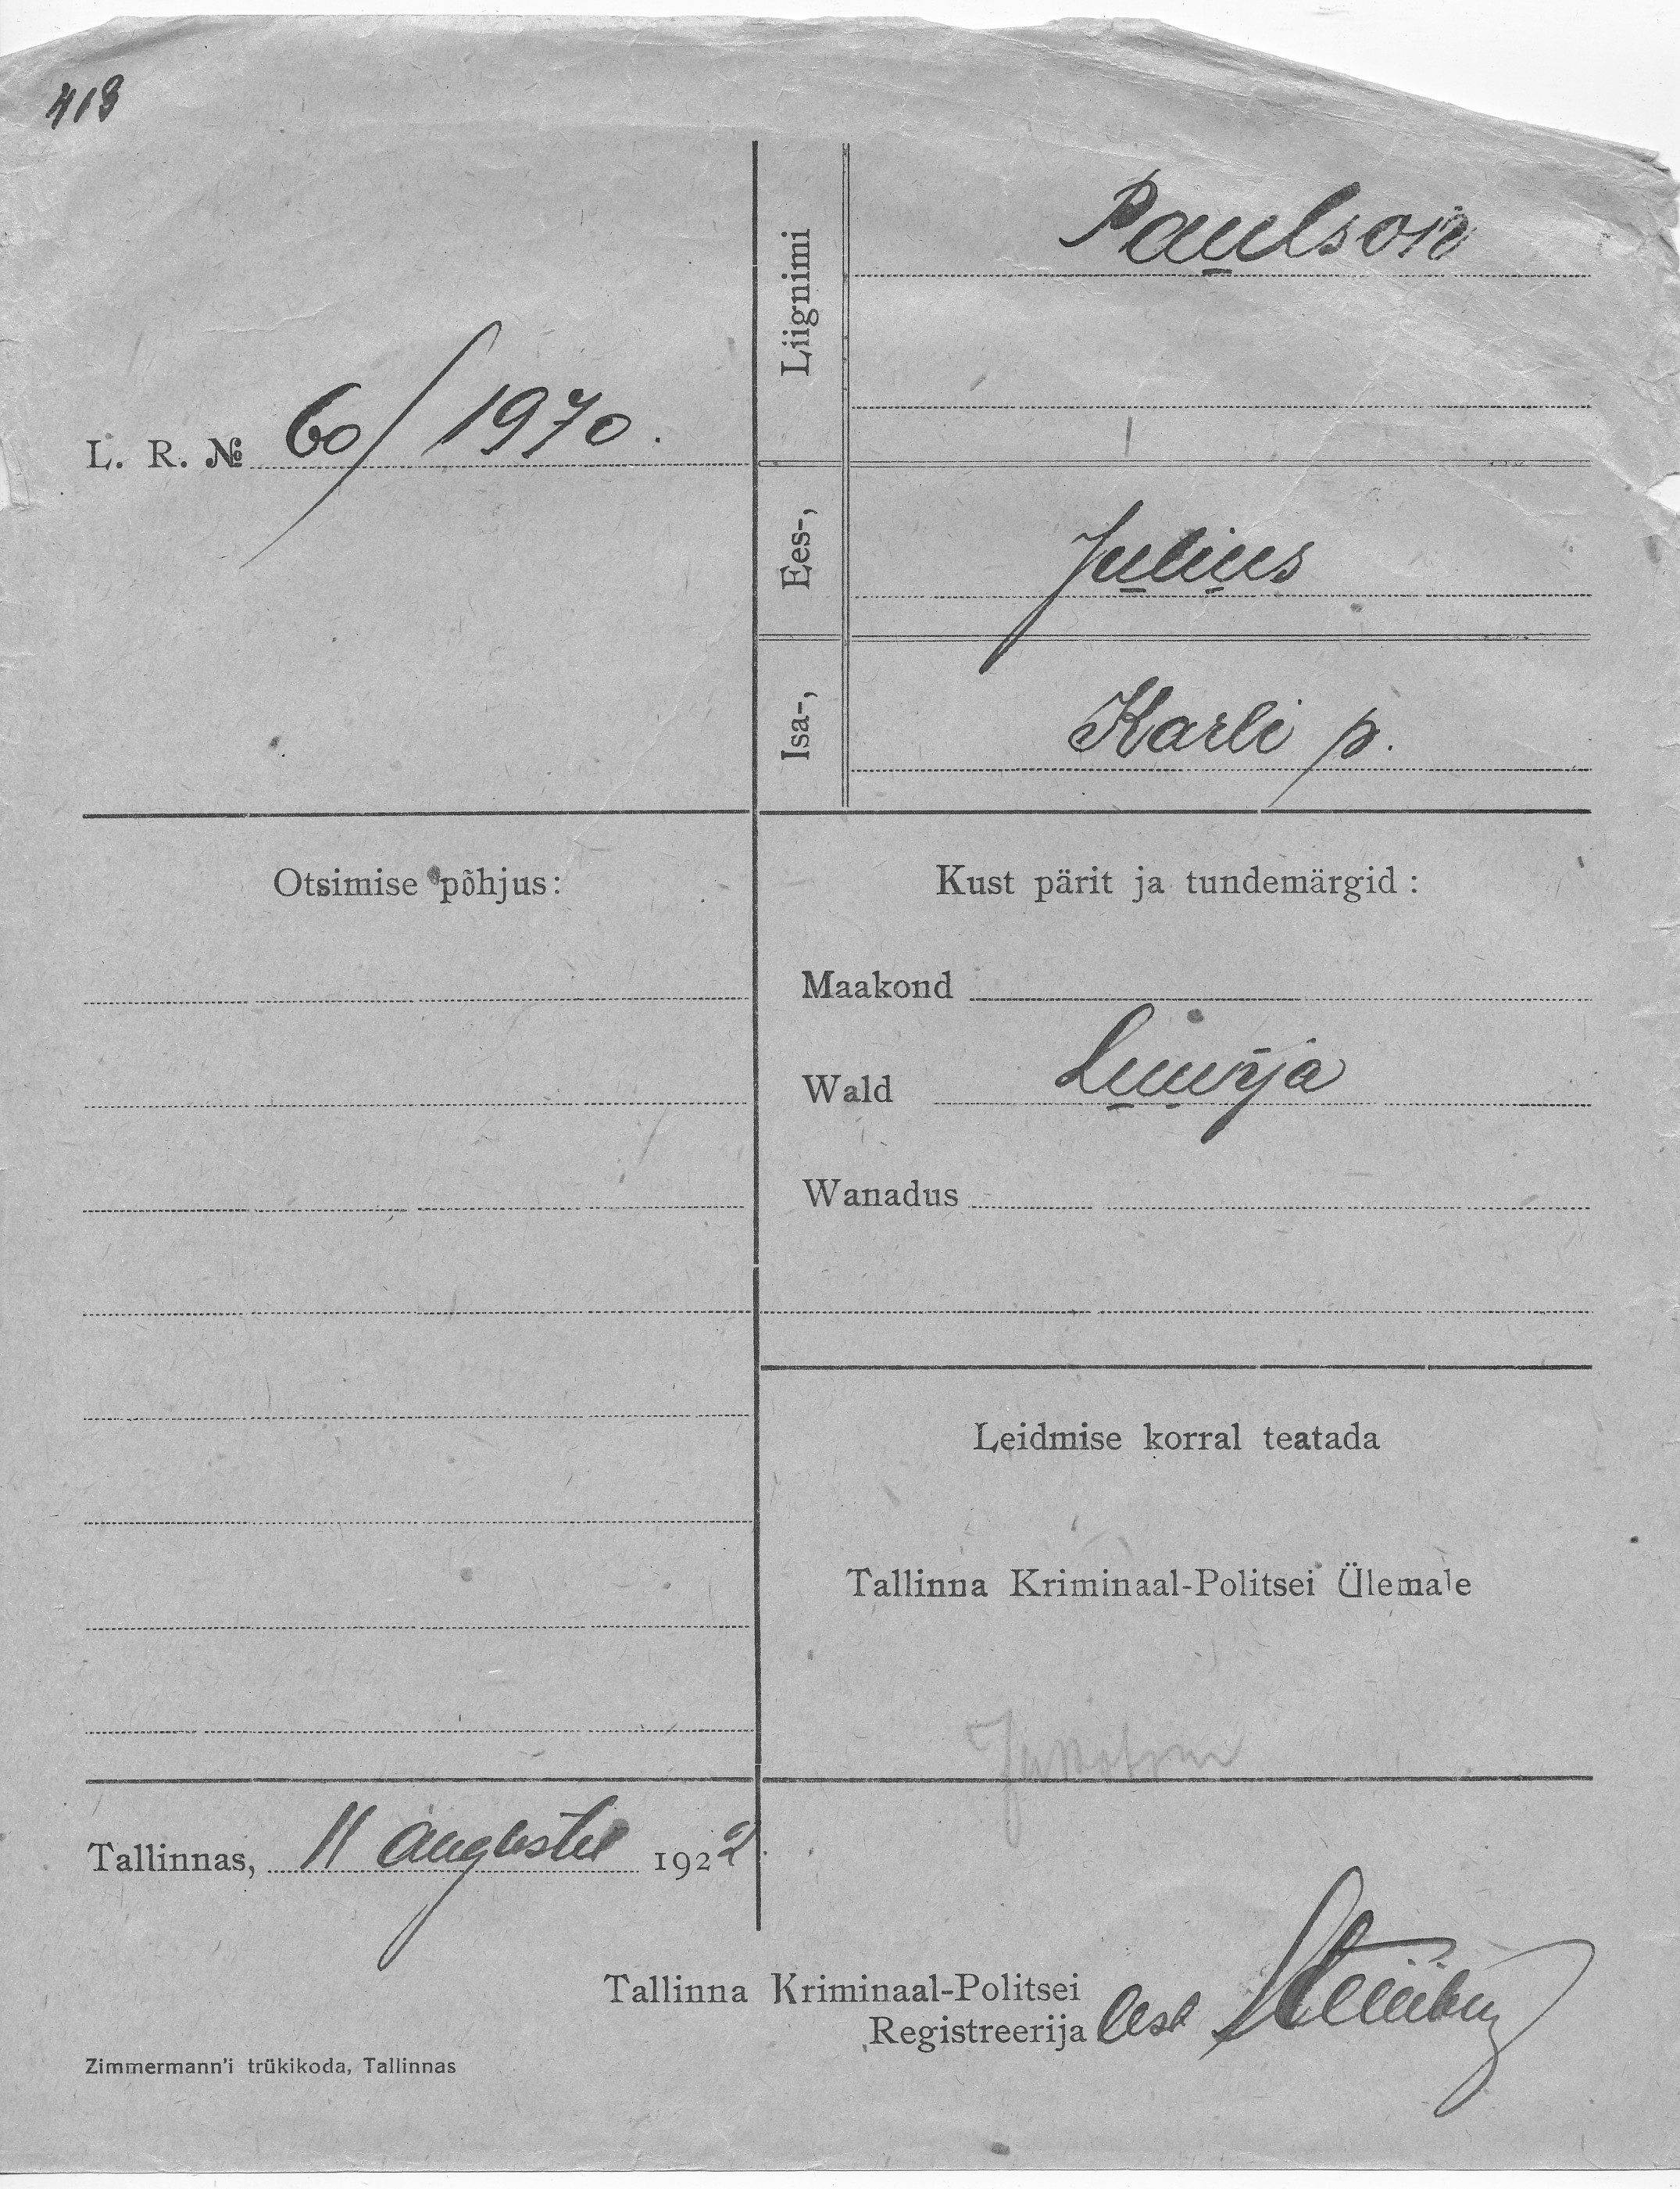 418
L. R. № 60/1970.
Liignimi
Paulson
Ees-,
Julius
Isa-,
Karli p.
Otsimise põhjus:
Kust pärit ja tundemärgid:
Maakond
Wald Luunja
Wanadus
Leidmise korral teatada
Tallinna Kriminaal-Politsei Ülemale
Tallinnas, 11 augustil 1922.
Tallinna Kriminaal-Politsei
Registreerija
Zimmermann'i trükikoda, Tallinnas